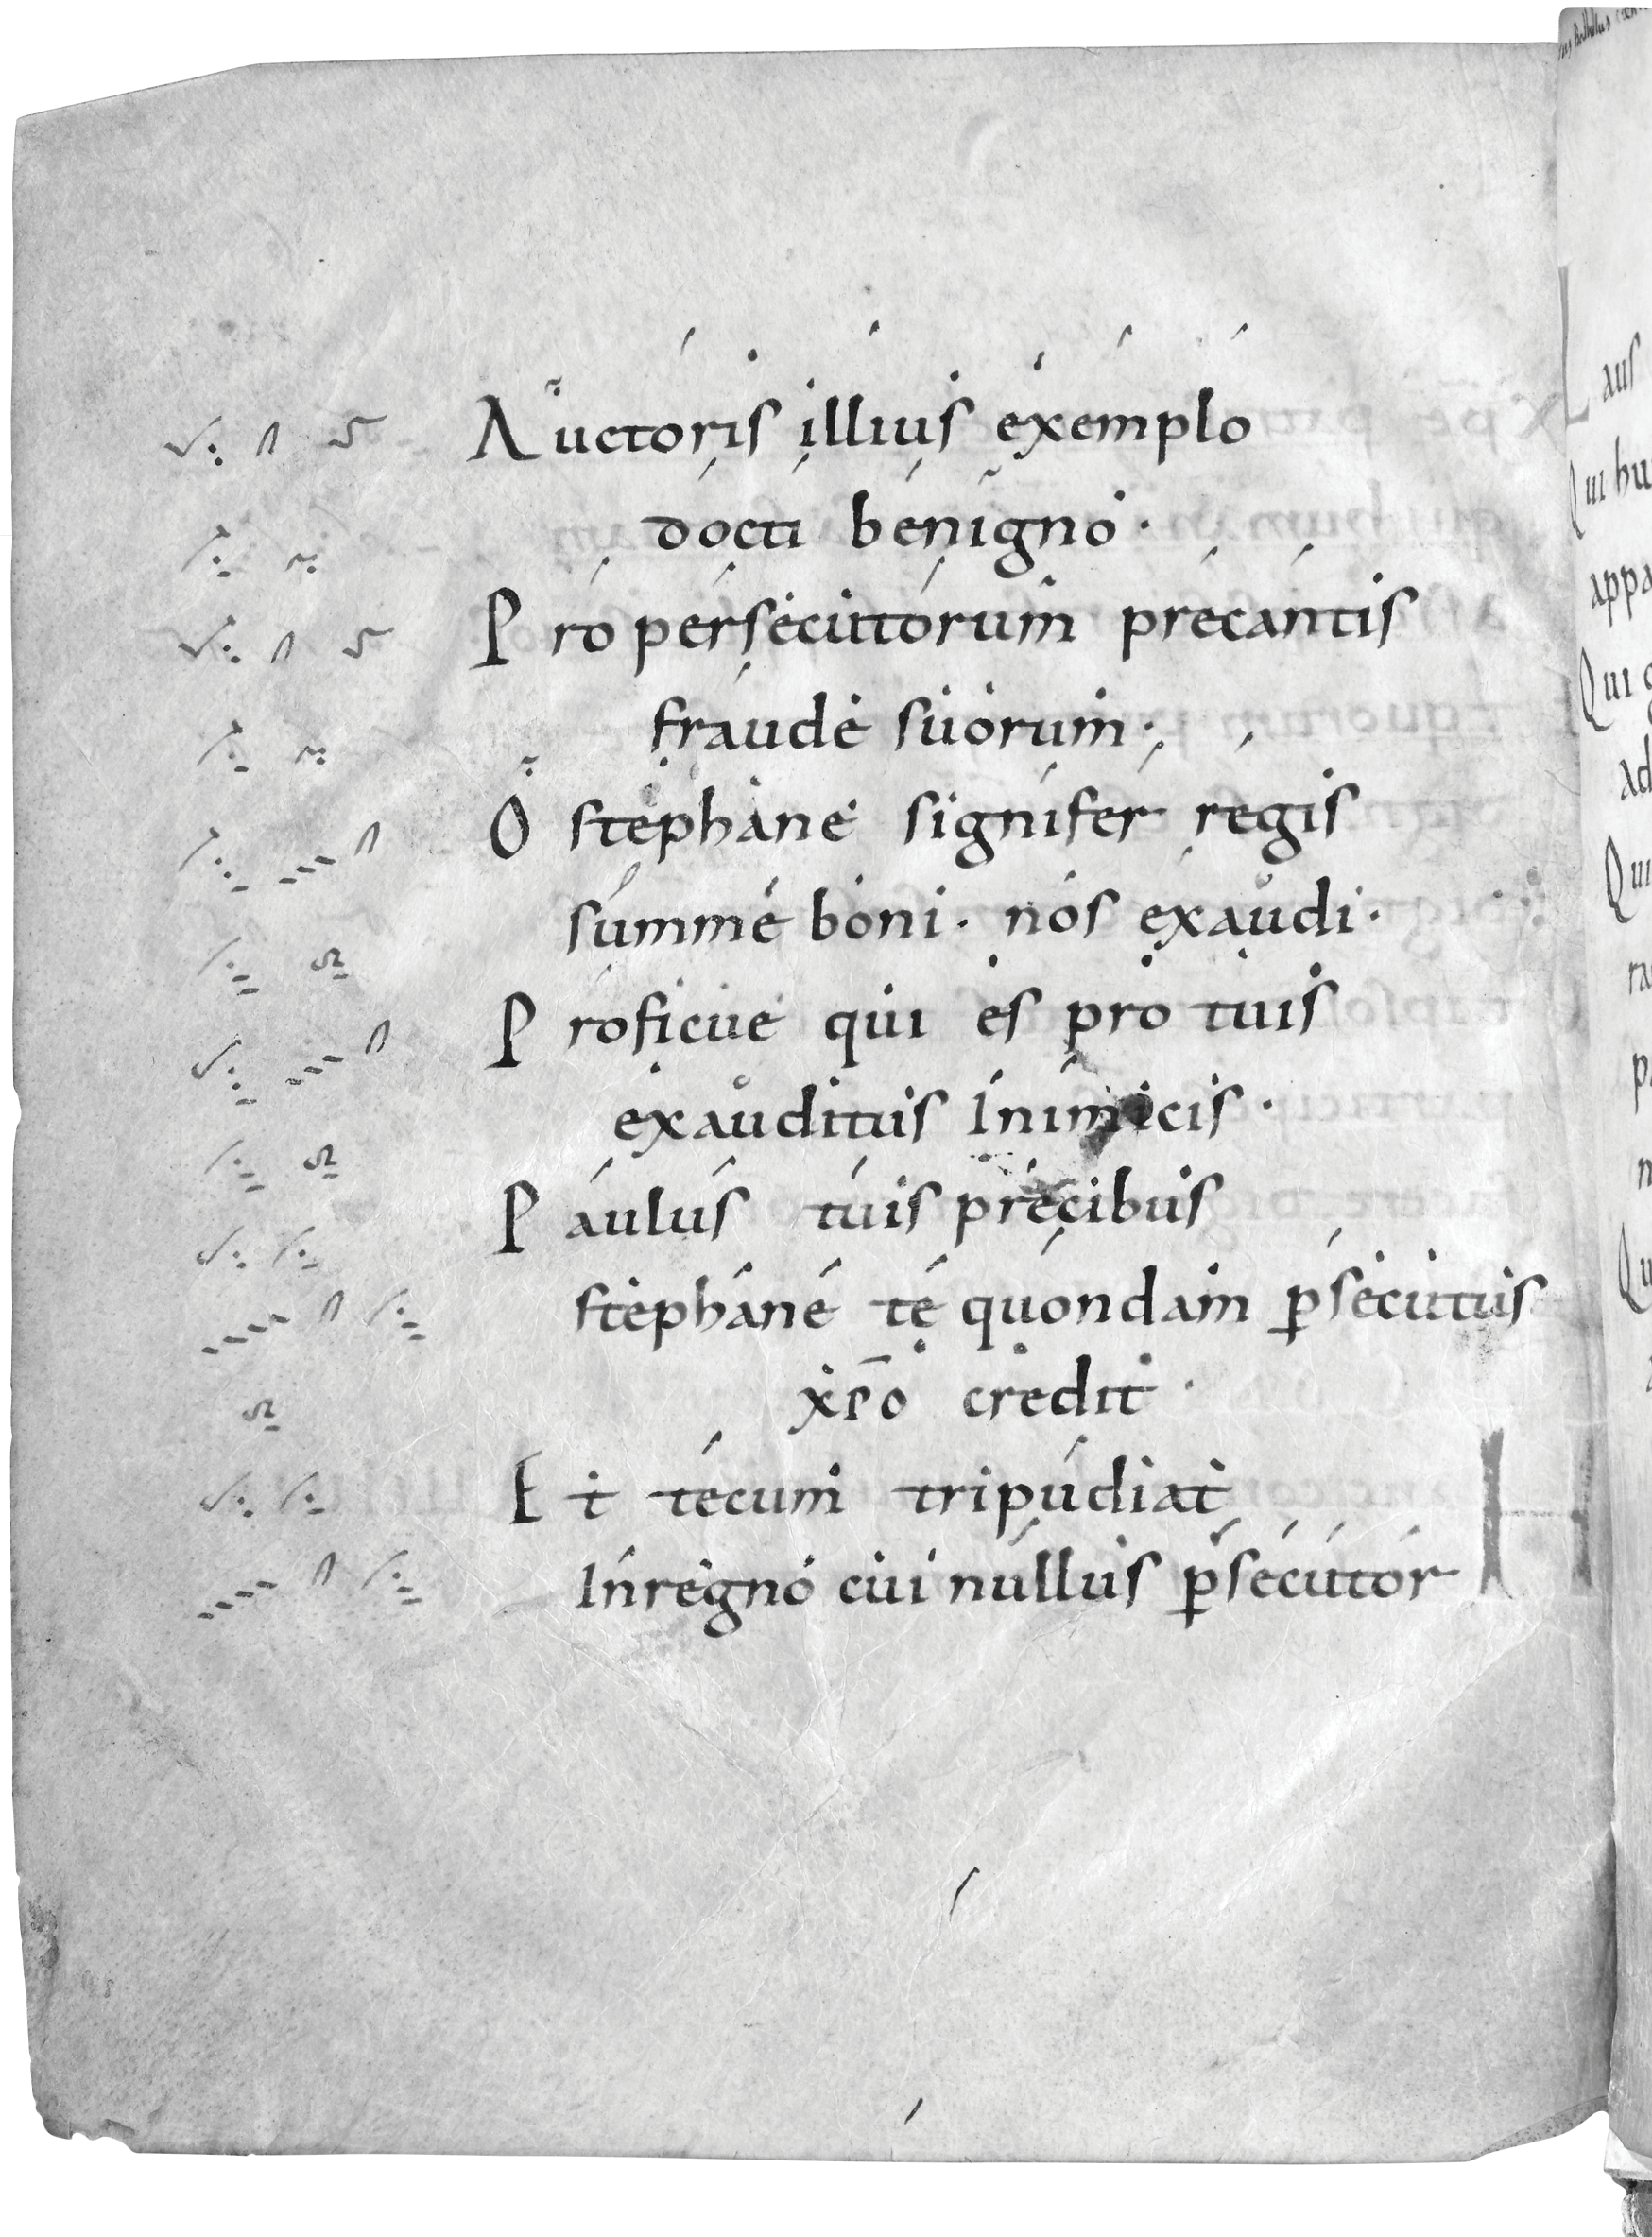 Auctoris illius exemplo
docti benigno·
Pro persecutorum precantis
fraude suorum·
O stephane signifer regis
summe boni· nos exaudi·
Proficue qui es pro tuis
exauditus Inimicis·
Paulus tuis precibus
stephane te quondam p̱secutus
xp̄o credit·
Et tecum tripudiat
Inregno cui nullus p̱secutor
Laus
Qui hu
appa
Qui
ad
Qui